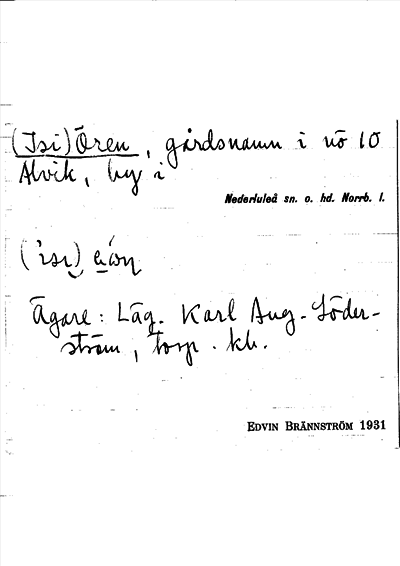 (Isi) Ören, gårdsnamn i nö 10
Alvik, by i
Nederluleå sn. o. hd. Norrb. l.
Ägare: Läg. Karl Aug. Söder-
ström, torp. kh.
EDVIN BRÄNNSTRÖM 1931